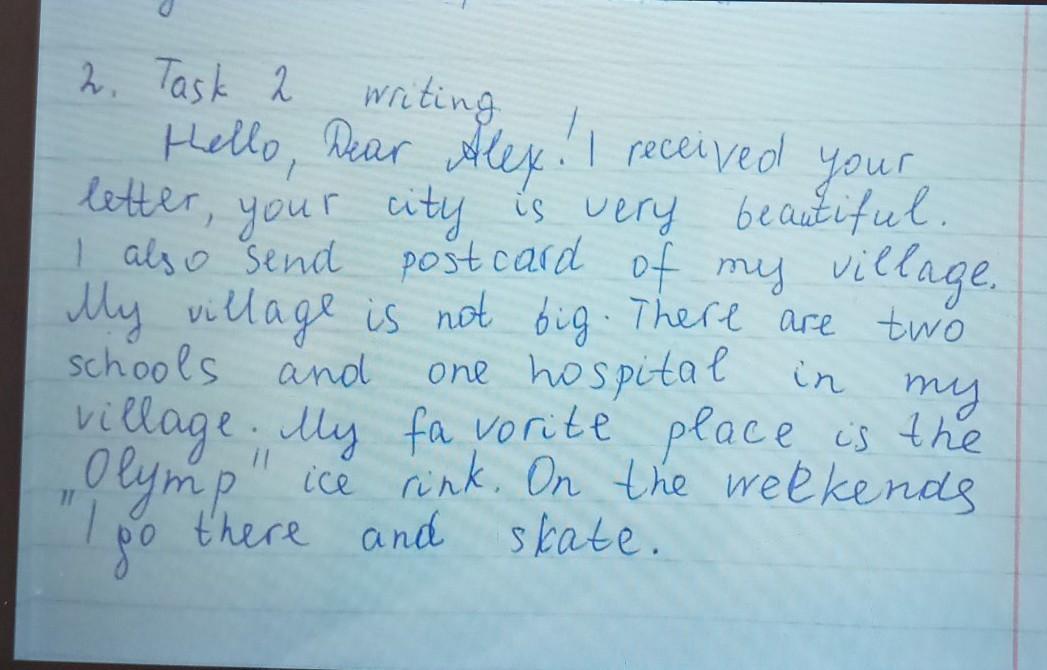 2. Task 2 writing
Hello, Dear Alex! I received your
letter, your city is very beautiful.
I also send postcard of my village.
My village is not big. There are two
schools and one hospital in my
village. My favorite place is the
„Olymp" ice rink. On the weekends
I go there and skate.